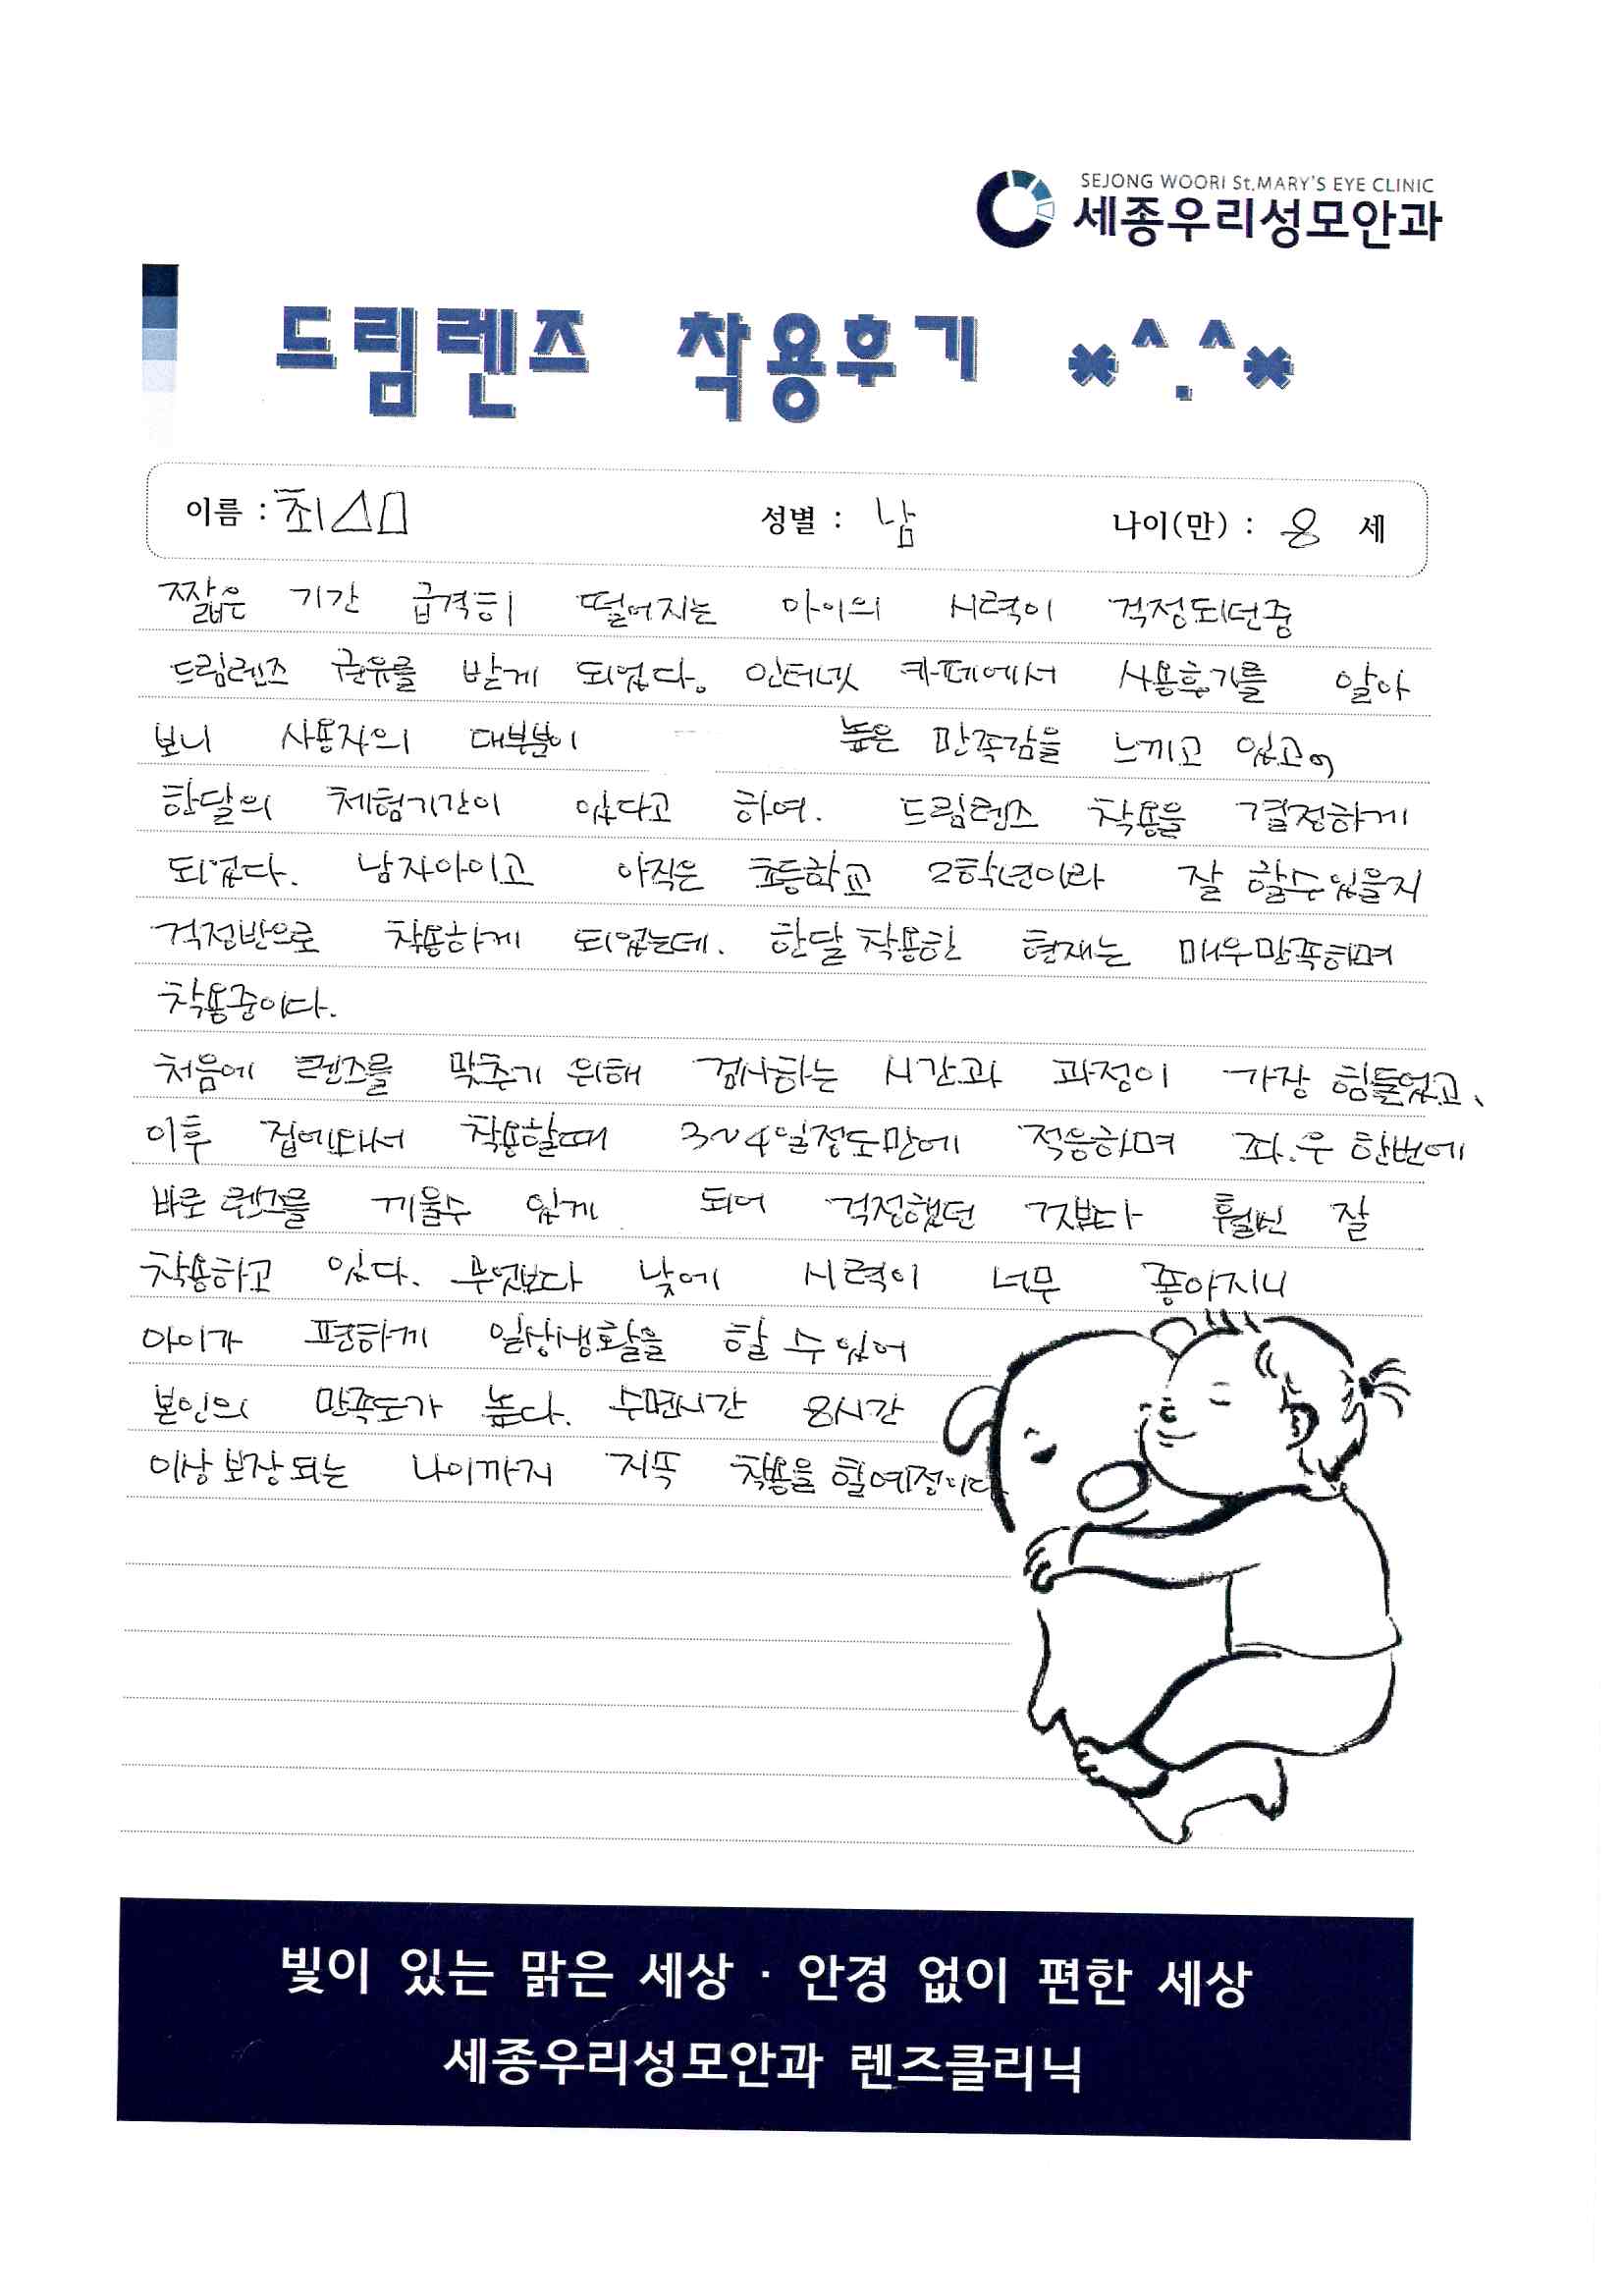 SEJONG WOORI St.MARY'S EYE CLINIC
세종우리성모안과
드림렌즈 착용후기 *^.^*
이름 : 최△□ 성별 : 남 나이(만) : 8 세
짧은 기간 급격히 떨어지는 아이의 시력이 걱정되던중
드림렌즈 권유를 받게 되었다. 인터넷 카페에서 사용후기를 알아
보니 사용자의 대부분이 높은 만족감을 느끼고 있고,
한달의 체험기간이 있다고 하여. 드림렌즈 착용을 결정하게
되었다. 남자아이고 아직은 초등학교 2학년이라 잘 할수있을지
걱정반으로 착용하게 되었는데. 한달 착용한 현재는 매우만족하며
착용중이다.
처음에 렌즈를 맞추기 위해 검사하는 시간과 과정이 가장 힘들었고,
이후 집에와서 착용할때 3~4일정도만에 적응하며 좌.우 한번에
바로 렌즈를 끼울수 있게 되어 걱정했던 것보다 훨씬 잘
착용하고 있다. 무엇보다 낮에 시력이 너무 좋아지니
아이가 편하게 일상생활을 할 수 있어
본인의 만족도가 높다. 수면시간 8시간
이상 보장되는 나이까지 지속 착용을 할예정이다
빛이 있는 맑은 세상 · 안경 없이 편한 세상
세종우리성모안과 렌즈클리닉